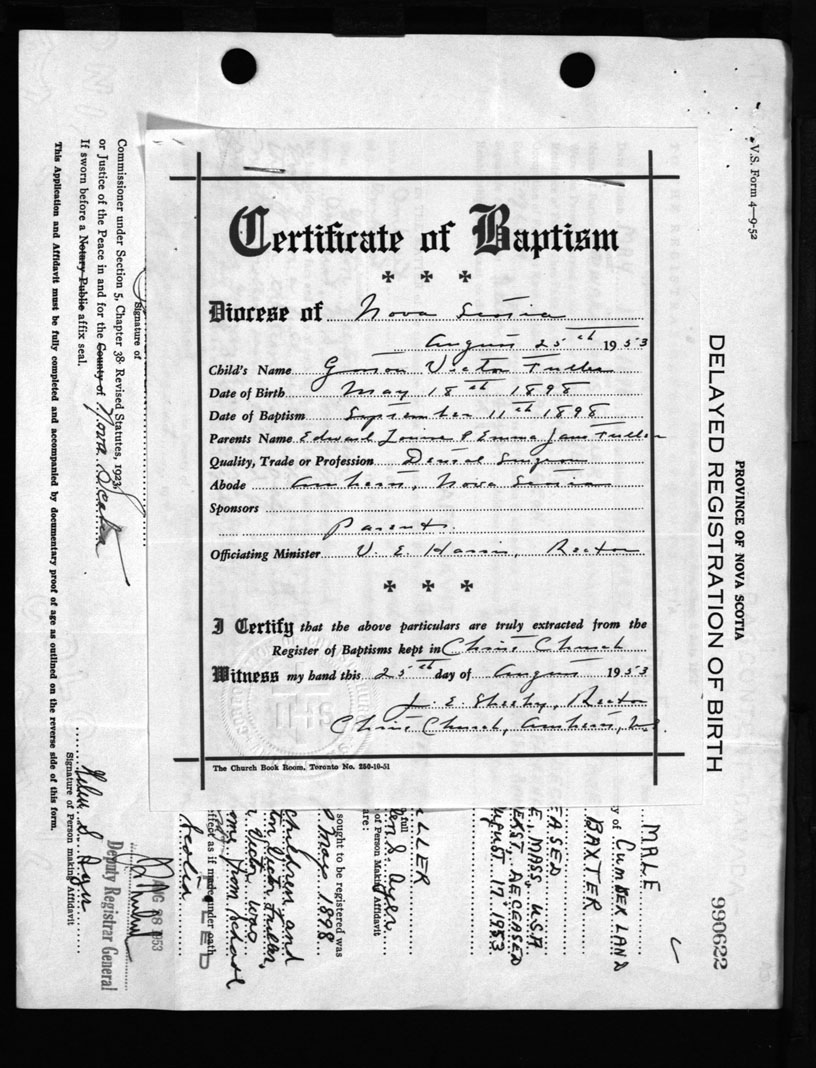 Certificate of Baptism
Diocese of Nova Scotia
August 25th 1953
Child's Name Victor Fuller
Date of Birth May 18th 1898
Date of Baptism September 11th 1898
Parents Name Edward & Emma Jane Fuller
Quality, Trade or Profession Dental Surgeon
Abode Amherst, Nova Scotia
Sponsors
Parents.
Officiating Minister V. E. Harris, Rector
I Certify that the above particulars are truly extracted from the
Register of Baptisms kept in Christ Church
Witness my hand this 25th day of August 1953
Rector
Christ Church, Amherst, N.S.
The Church Book Room, Toronto No. 250-10-51
V.S. Form 4-9-52
PROVINCE OF NOVA SCOTIA
DELAYED REGISTRATION OF BIRTH
990622
MALE
y of CUMBERLAND
BAXTER
EASED
E, MASS, U.S.A
ERST, DECEASED
ugust 17 1953
LLER
full
len S. Ayer
of Person Making Affidavit
are:
sought to be registered was
May 1898
children and
Victor Fuller,
Victor was
from school
effect as if made under oath
Scotia
FILED
Signature of
Commissioner under Section 5, Chapter 38 Revised Statutes, 1923,
or Justice of the Peace in and for the County of Nova Scotia
If sworn before a Notary Public affix seal.
This Application and Affidavit must be fully completed and accompanied by documentary proof of age as outlined on the reverse side of this form.
Helen S. Ayer
Signature of Person making Affidavit
AUG 28 1953
Deputy Registrar General